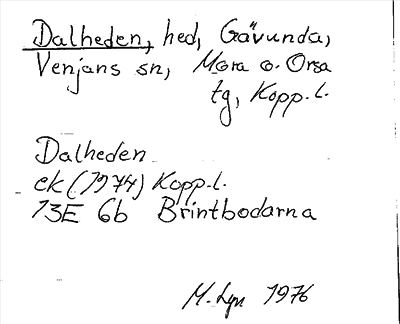 Dalheden, hed, Gävunda,
Venjans sn, Mora o. Orsa
tg, Kopp. l.
Dalheden
ek (1974) Kopp. l.
13E 6b Brintbodarna
M. Lyn 1976